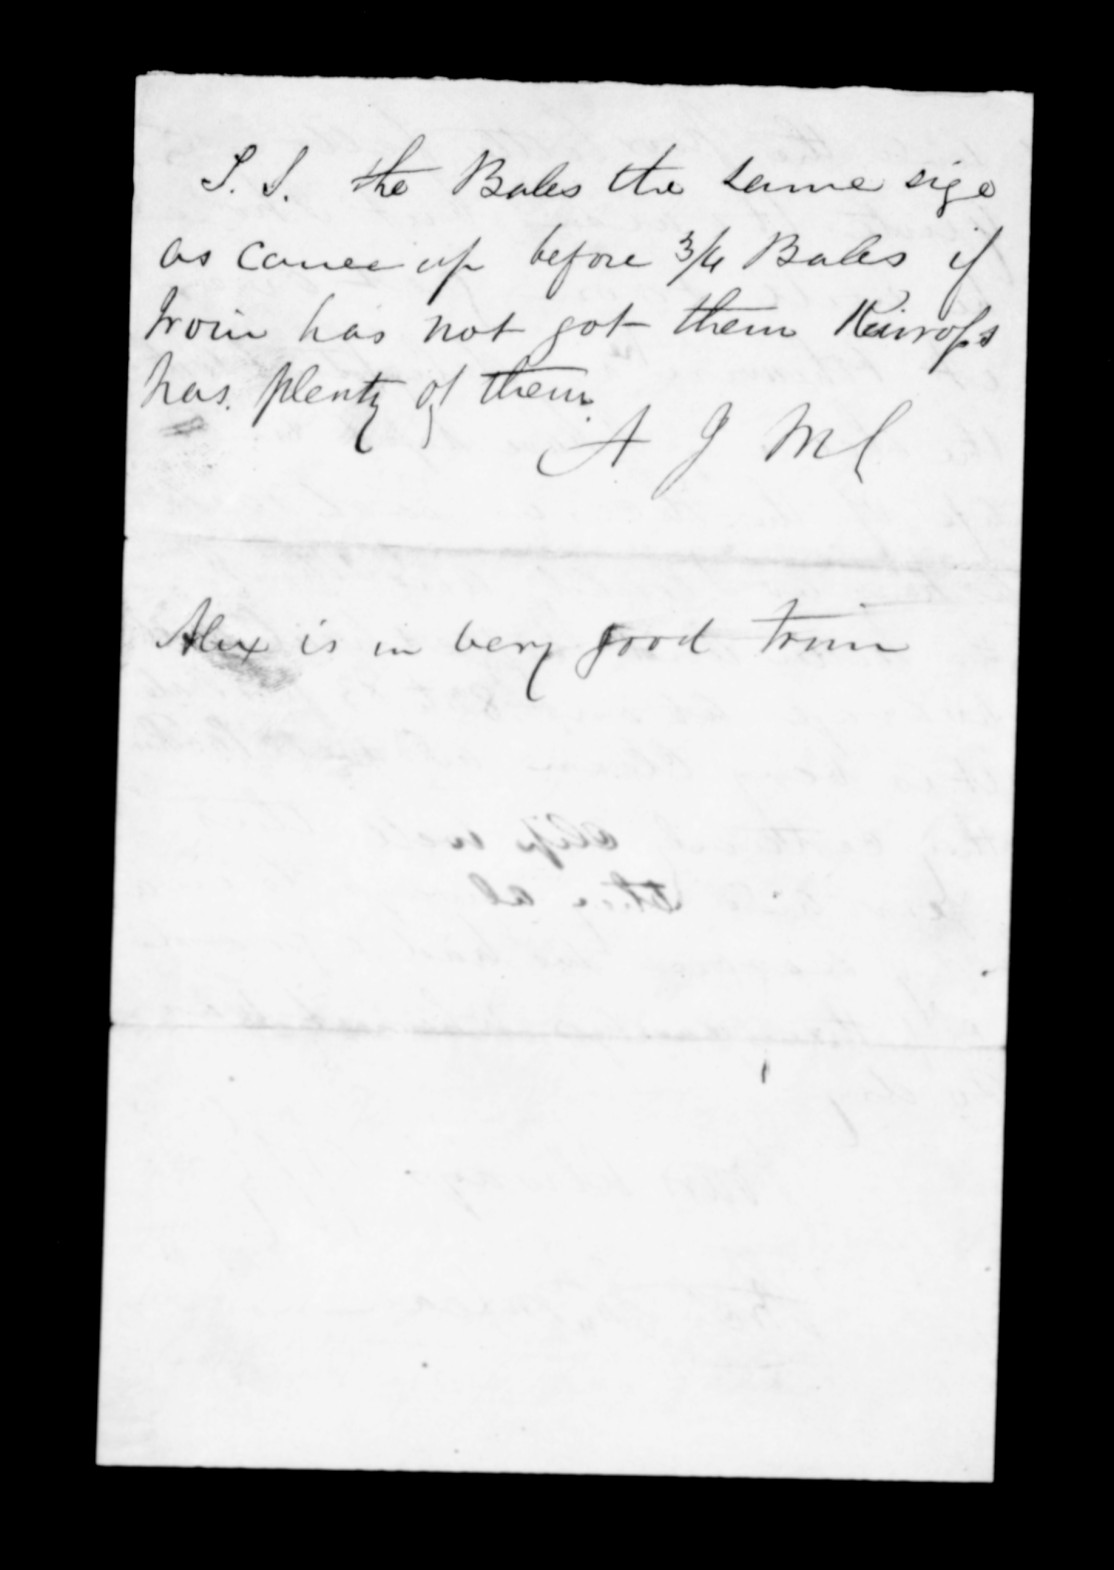 P. S. the Bales the same size
as came up before 3/4 Bales if
Irvin has not got them Kinross
has plenty of them.
A J McL
Alex is in very good trim